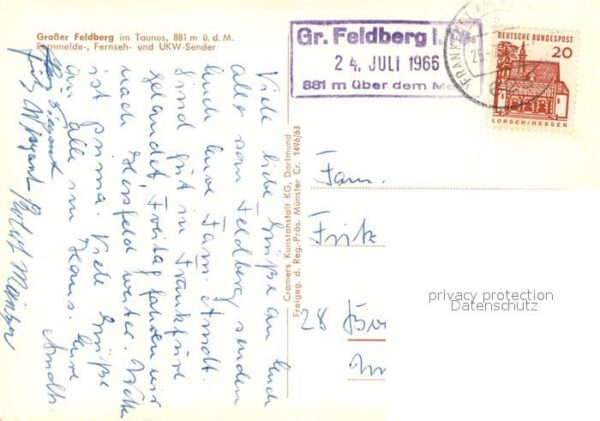 Großer Feldberg im Taunus, 881 m ü. d. M.
Fernmelde-, Fernseh- und UKW-Sender
Gr. Feldberg i. T
24. JULI 1966
881 m über dem M
FRANKFURT
DEUTSCHE BUNDESPOST
20
LORSCH/HESSEN
Viele liebe Grüße an Euch
alle vom Feldberg senden
Euch Eure Fam. Arndt.
Sind gut in Frankfurt
gelandet Freitag fahren wir
nach Hersfeld weiter. Wetter
ist prima. Viele Grüße
an alle im Haus. Eure
Arndts.
Fritz
Cramers Kunstanstalt KG, Dortmund
Freigeg. d. Reg.-Präs. Münster Cr. 1496/63
Fam.
Fritz
28
privacy protection
Datenschutz